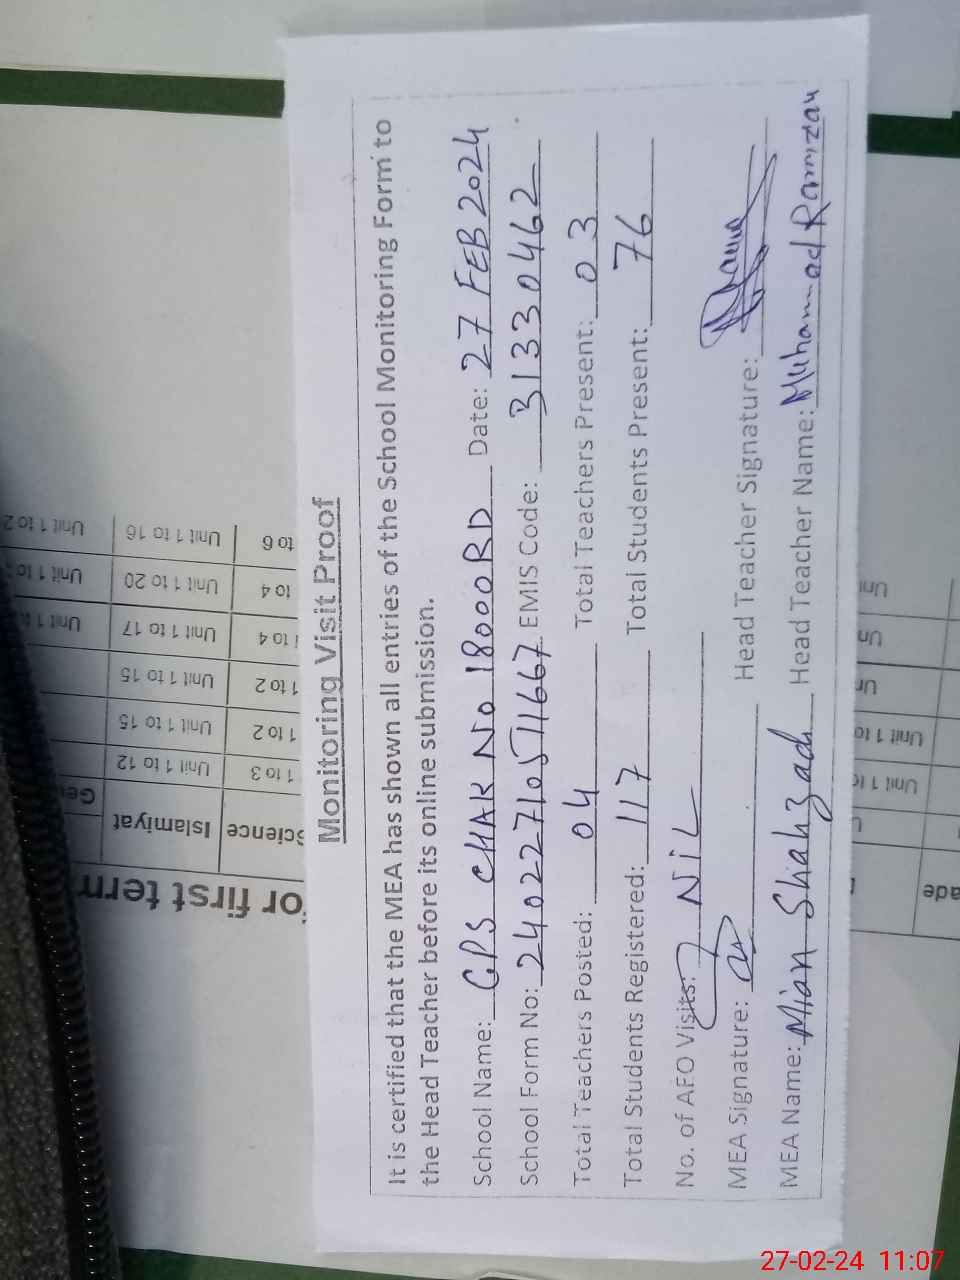 Monitoring Visit Proof
It is certified that the MEA has shown all entries of the School Monitoring Form to
the Head Teacher before its online submission.
School Name: GPS CHAK NO 18000RD Date: 27 FEB 2024
School Form No: 24022710511667 EMIS Code: 31330462
Total Teachers Posted: 04 Total Teachers Present: 03
Total Students Registered: 117 Total Students Present: 76
No. of AEO Visits: NiL
MEA Signature: Head Teacher Signature:
MEA Name: Mian Shahzad Head Teacher Name: Muhammad Ramzan
or first term
Science Islamiyat Ge
1 to 3 Unit 1 to 12
1 to 2 Unit 1 to 15
1 to 2 Unit 1 to 15
1 to 4 Unit 1 to 17 Unit 1 to
to 4 Unit 1 to 20 Unit 1 to
to 6 Unit 1 to 16 Unit 1 to 2
ade
Unit 1 to
Unit 1 to
Un
Un
Uni
27-02-24 11:07